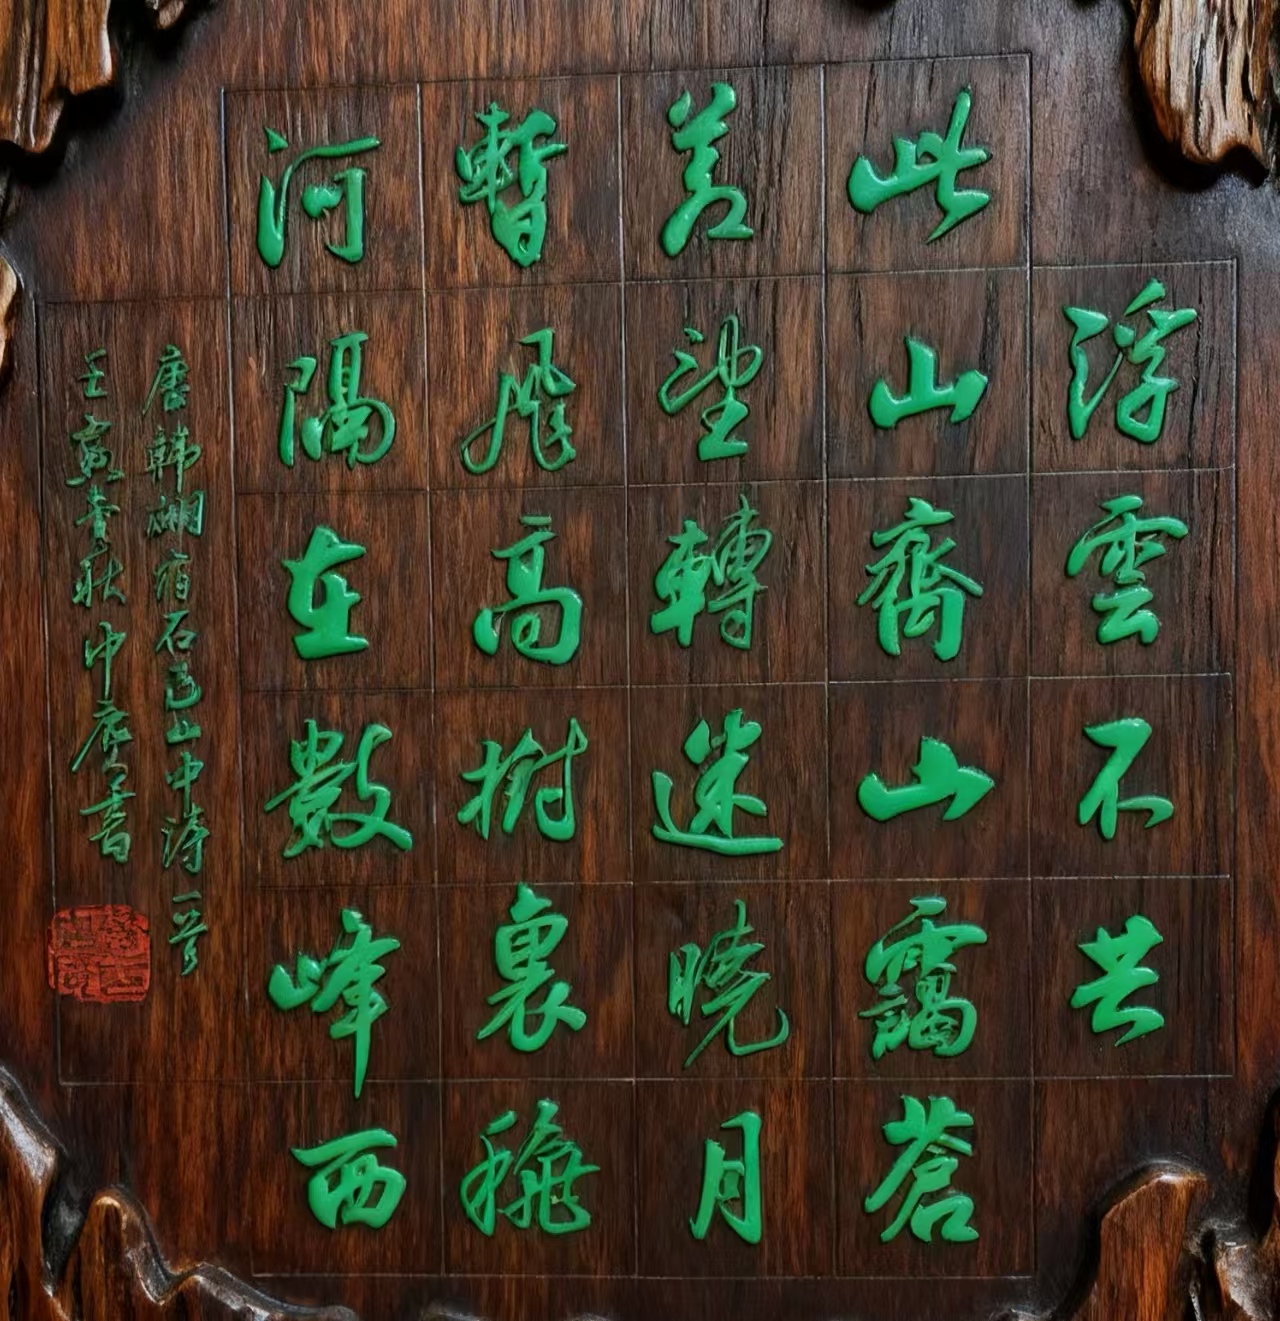 浮雲不共
此山齊山靄蒼
蒼望轉迷曉月
暫飛高樹裏穐
河隔在數峰西
唐韓翃宿石邑山中詩一首
壬寅秋中書